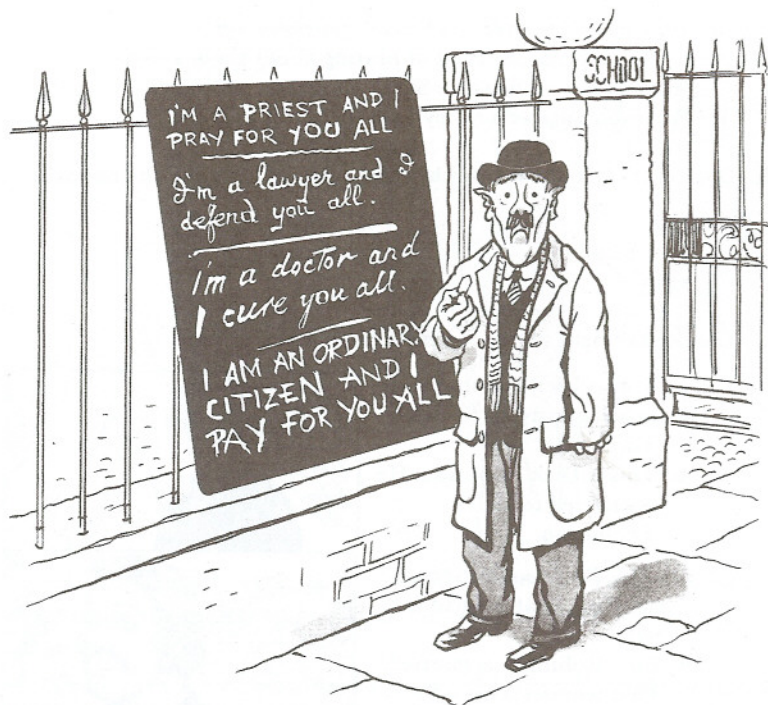 SCHOOL
I'M A PRIEST AND I
PRAY FOR YOU ALL
I'm a lawyer and I
defend you all.
I'm a doctor and
I cure you all.
I AM AN ORDINARY
CITIZEN AND I
PAY FOR YOU ALL